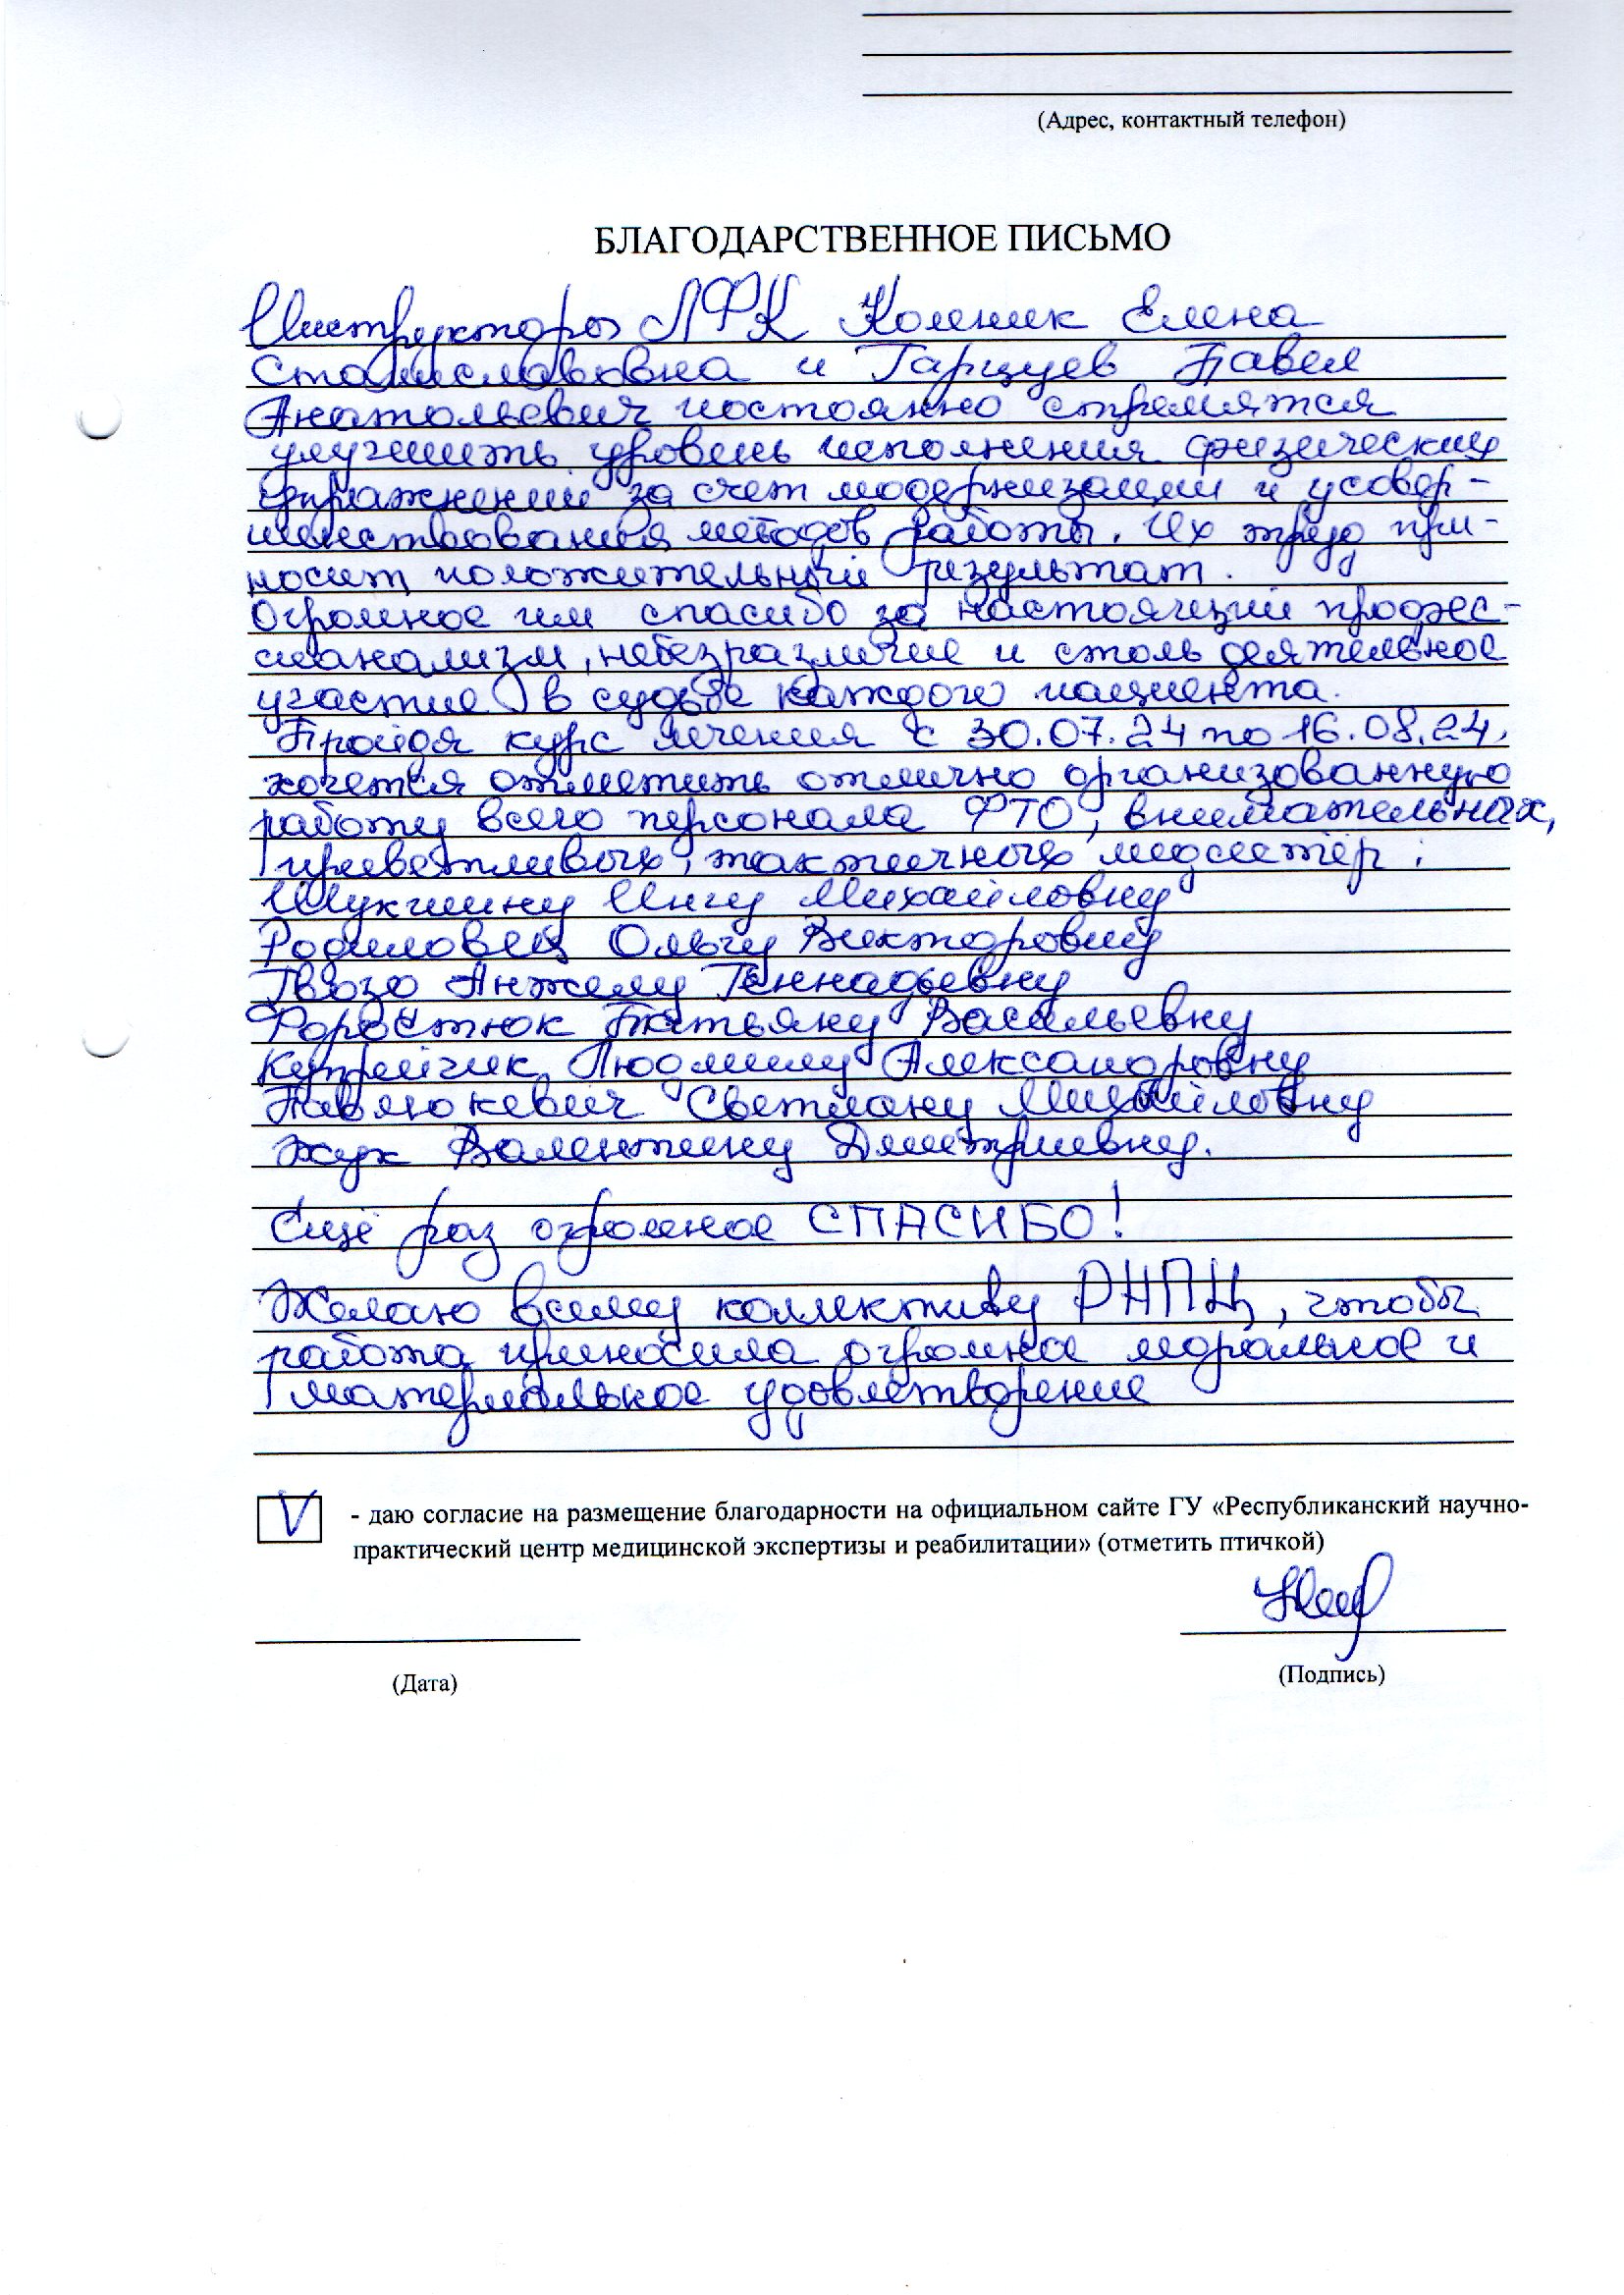 (Адрес, контактный телефон)
БЛАГОДАРСТВЕННОЕ ПИСЬМО
Инструкторы ЛФК Колник Елена
Станиславовна и Гарцуев Павел
Анатольевич постоянно стремятся
улучшить уровень исполнения физических
упражнений за счет модернизации и усовер-
шенствования методов работы. Их труд при-
носит положительный результат.
Огромное им спасибо за настоящий профес-
сионализм, небезразличие и столь деятельное
участие в судьбе каждого пациента.
Пройдя курс лечения с 30.07.24 по 16.08.24,
хочется отметить отлично организованную
работу всего персонала ФТО, внимательных,
приветливых, тактичных медсестёр:
Шукшину Ингу Михайловну
Родиловец Ольгу Викторовну
Гвозд Анжелу Геннадьевну
Форостюк Татьяну Васильевну
Купрейчик Людмилу Александровну
Павлюкевич Светлану Михайловну
Жук Валентину Дмитриевну.
Ещё раз огромное СПАСИБО!
Желаю всему коллективу РНПЦ, чтобы
работа приносила огромное моральное и
материальное удовлетворение
V - даю согласие на размещение благодарности на официальном сайте ГУ «Республиканский научно-
практический центр медицинской экспертизы и реабилитации» (отметить птичкой)
(Дата)
(Подпись)